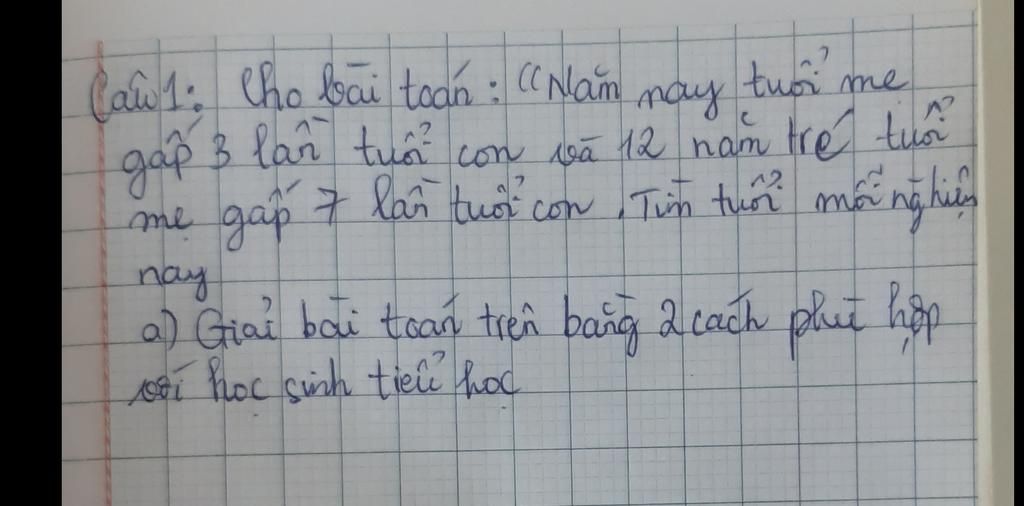 Câu 1: Cho bài toán: "Năm nay tuổi mẹ
gấp 3 lần tuổi con và 12 năm trế tuổi
mẹ gấp 7 lần tuổi con. Tìm tuổi mỗi nghiện
nay
a) Giải bài toán trên bằng 2 cách phù hợp
với học sinh tiểu học